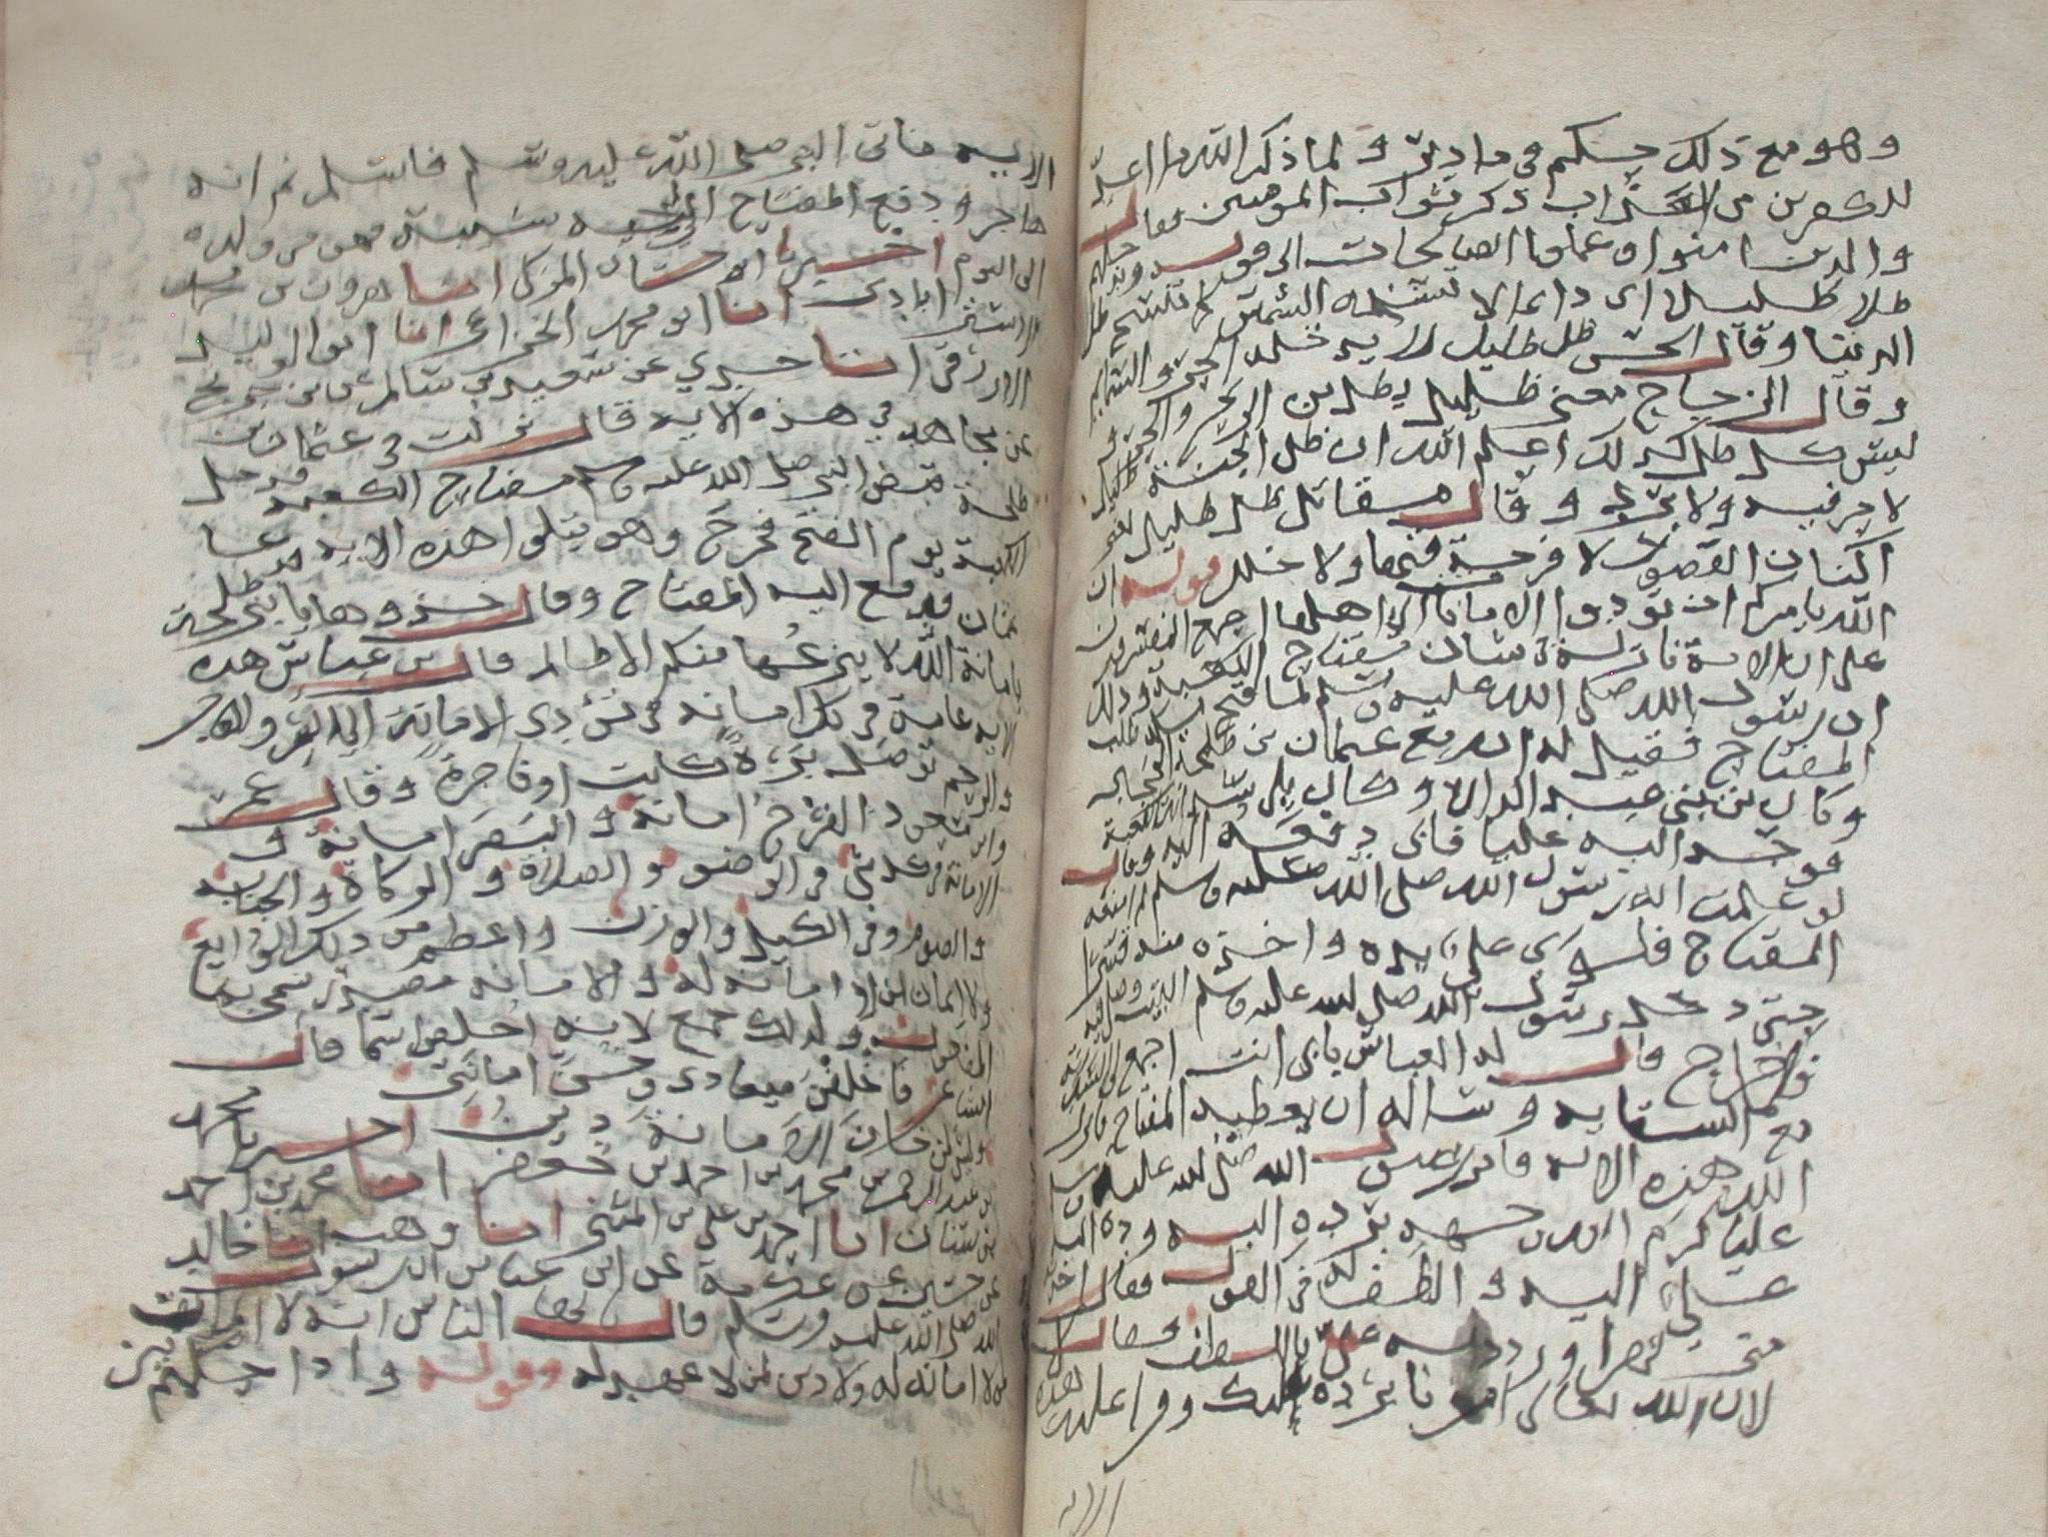 وهو مع ذلك حكيم في ما دبر ولما ذكر الله ما اعد
للكفرين من العذاب ذكر ثواب المومنين فقال
والذين امنوا وعملوا الصالحات الى قوله وندخلهم
ظلا ظليلا اى دايما لا تنسخه الشمس كما تنسخ ظل
الدنيا وقال الحسن ظل ظليل لا يدخله الحر والسمايم
وقال الزجاج معنى ظليل يظل من الريح والحر و
ليس كل ظل كذلك اعلم الله ان ظل الجنة ظليل
لا حر فيه ولا برد وقال مقاتل ظل ظليل يعنى
اكنان القصور لا فرجة فيها ولا خلل قوله ان
الله يامركم ان تودوا الامانات الى اهلها اجمع المفسرون
على ان الاية نازلة فى شان مفتاح الكعبة وذلك
ان رسول الله صلى الله عليه وسلم لما فتح مكة طلب
المفتاح فقيل له انه مع عثمان بن طلحة الحجبى
وكان من بنى عبد الدار وكان يلى سدانة الكعبة
فوجه اليه عليا فابى دفعه اليه وقال
لو علمت انه رسول الله صلى الله عليه وسلم لم امنعه
المفتاح فلوى على يده واخذه منه قسرا
حتى دخل رسول الله صلى الله عليه وسلم البيت وصلى فيه
فلما خرج قال له العباس بابى انت اجمع لى السدانة
مع السقاية وساله ان يعطيه المفتاح فانزل
الله هذه الاية فامر رسول الله صلى الله عليه وسلم
عليا كرم الله وجهه برده اليه
على اليه والطف له فى القول فقال اخذته
منى قهرا ورددته على باللطف فقال
لان الله تعالى امرنا برده عليك وقرا عليه هذه
الاية
الاية فاتى النبى صلى الله عليه وسلم فاسلم ثم انه
هاجر ودفع المفتاح الى اخيه شيبة فهو فى ولده
الى اليوم اخبرنا ابو حسان المزكى انبا هرون بن محمد
الاستراباذى انبا ابو محمد الخزاعى انبا ابو الوليد
الازرقى انبا جدي عن سعيد بن سالم عن ابن جريج
عن مجاهد في هذه الاية قال نزلت فى عثمان بن
طلحة قبض النبى صلى الله عليه وسلم مفتاح الكعبة فدخل
الكعبة يوم الفتح فخرج وهو يتلوا هذه الاية فدعا
عثمان فدفع اليه المفتاح وقال خذوها يا بنى طلحة
بامانة الله لا ينزعها منكم الا ظالم قال بن عباس هذه
الاية عامة فى كل امانة فى تؤدى الامانة الى البر والفاجر
والرحم توصل برة كانت او فاجرة وقال عمر
وابن مسعود الفرج امانة والبصر امانة و
الامانة فى كل شى فى الوضو والصلاة والزكاة والجنابة
والصوم وفى الكيل والوزن واعظم من ذلك الودايع
ولا ايمان لمن لا امانة له والامانة مصدر سمى به
المفعول ولذلك جمع لانه اخلص اسما قال
الشاعر فاخلفن ميعادى وخن امانتى
وليس لمن خان الامانة دين اخبرنا محمد
بن عبد الرحمن بن محمد بن احمد بن جعفر انبا محمد بن احمد
بن سنان انبا احمد بن على بن المثنى انبا وهب انبا خالد
عن حسين عن عكرمة عن ابن عباس ان رسول
الله صلى الله عليه وسلم قال ايها الناس انه لا ايمان
لمن لا امانة له ولا دين لمن لا عهد له وقوله واذا حكمتم بين